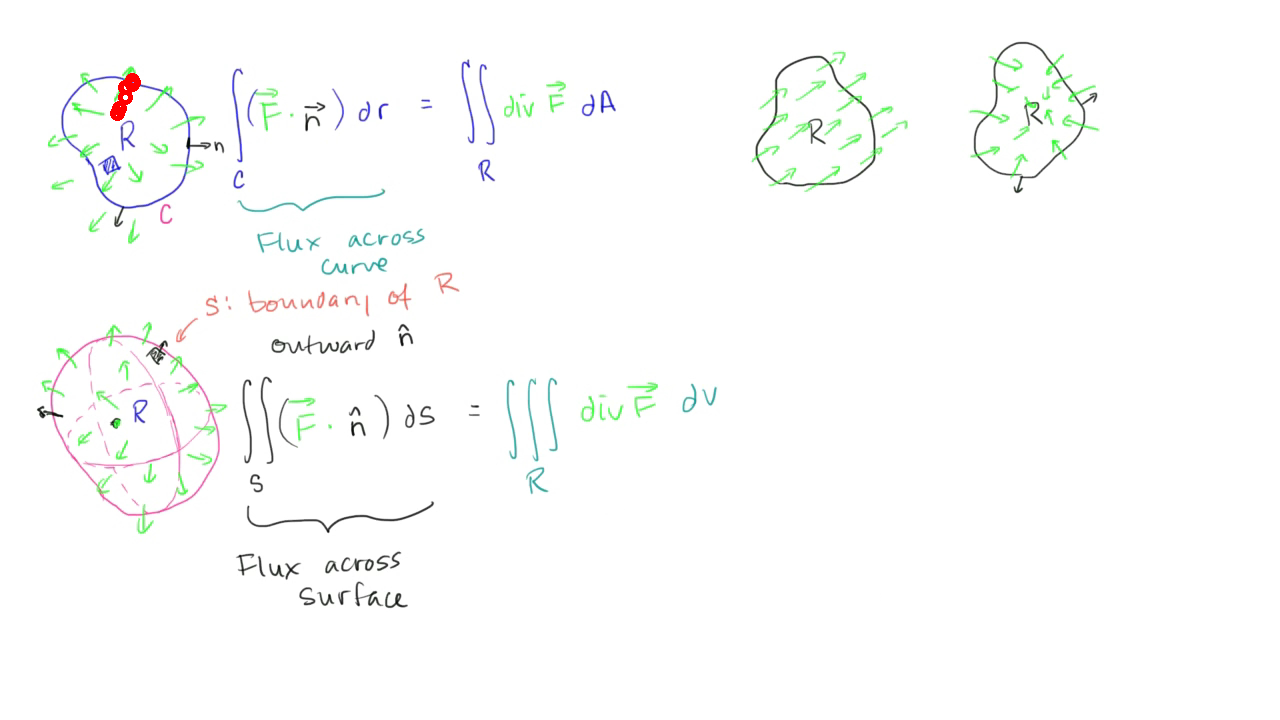 R
n
C
∫_C (F⃗ · n⃗) dr = ∬_R div F⃗ dA
Flux across
curve
R
R
S: boundary of R
outward n̂
R
∬_S (F⃗ · n̂) ds = ∭_R div F⃗ dV
Flux across
surface